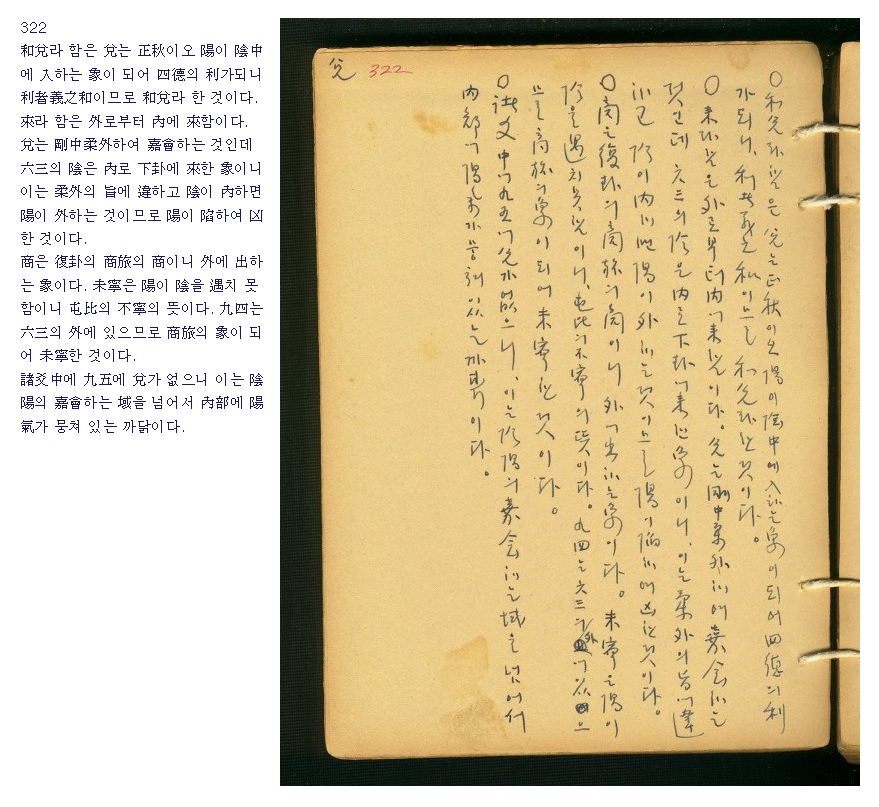 322
和兌라 함은 兌는 正秋이오 陽이 陰中
에 入하는 象이 되어 四德의 利가되니
利者義之和이므로 和兌라 한 것이다.
來라 함은 外로부터 內에 來함이다.
兌는 剛中柔外하여 嘉會하는 것인데
六三의 陰은 內로 下卦에 來한 象이니
이는 柔外의 旨에 違하고 陰이 內하면
陽이 外하는 것이므로 陽이 陷하여 凶
한 것이다.
商은 復卦의 商旅의 商이니 外에 出하
는 象이다. 未寧은 陽이 陰을 遇치 못
함이니 屯比의 不寧의 뜻이다. 九四는
六三의 外에 있으므로 商旅의 象이 되
어 未寧한 것이다.
諸爻中에 九五에 兌가 없으니 이는 陰
陽의 嘉會하는 域을 넘어서 內部에 陽
氣가 뭉쳐 있는 까닭이다.
兌 322
○和兌라 함은 兌는 正秋이오 陽이 陰中에 入하는 象이 되어 四德의 利
가 되니, 利者義之和이므로 和兌라 한 것이다.
○來라 함은 外로부터 內에 來함이다. 兌는 剛中柔外하여 嘉会하는
것인데 六三의 陰은 內로 下卦에 來한 象이니, 이는 柔外의 旨에 違
하고 陰이 內하면 陽이 外하는 것이므로 陽이 陷하여 凶한 것이다.
○商은 復卦의 商旅의 商이니 外에 出하는 象이다. 未寧은 陽이
陰을 遇치 못함이니, 屯比의 不寧의 뜻이다. 九四는 六三의 外에 있으
므로 商旅의 象이 되어 未寧한 것이다.
○諸爻中에 九五에 兌가 없으니, 이는 陰陽의 嘉会하는 域을 넘어서
內部에 陽氣가 뭉쳐 있는 까닭이다.